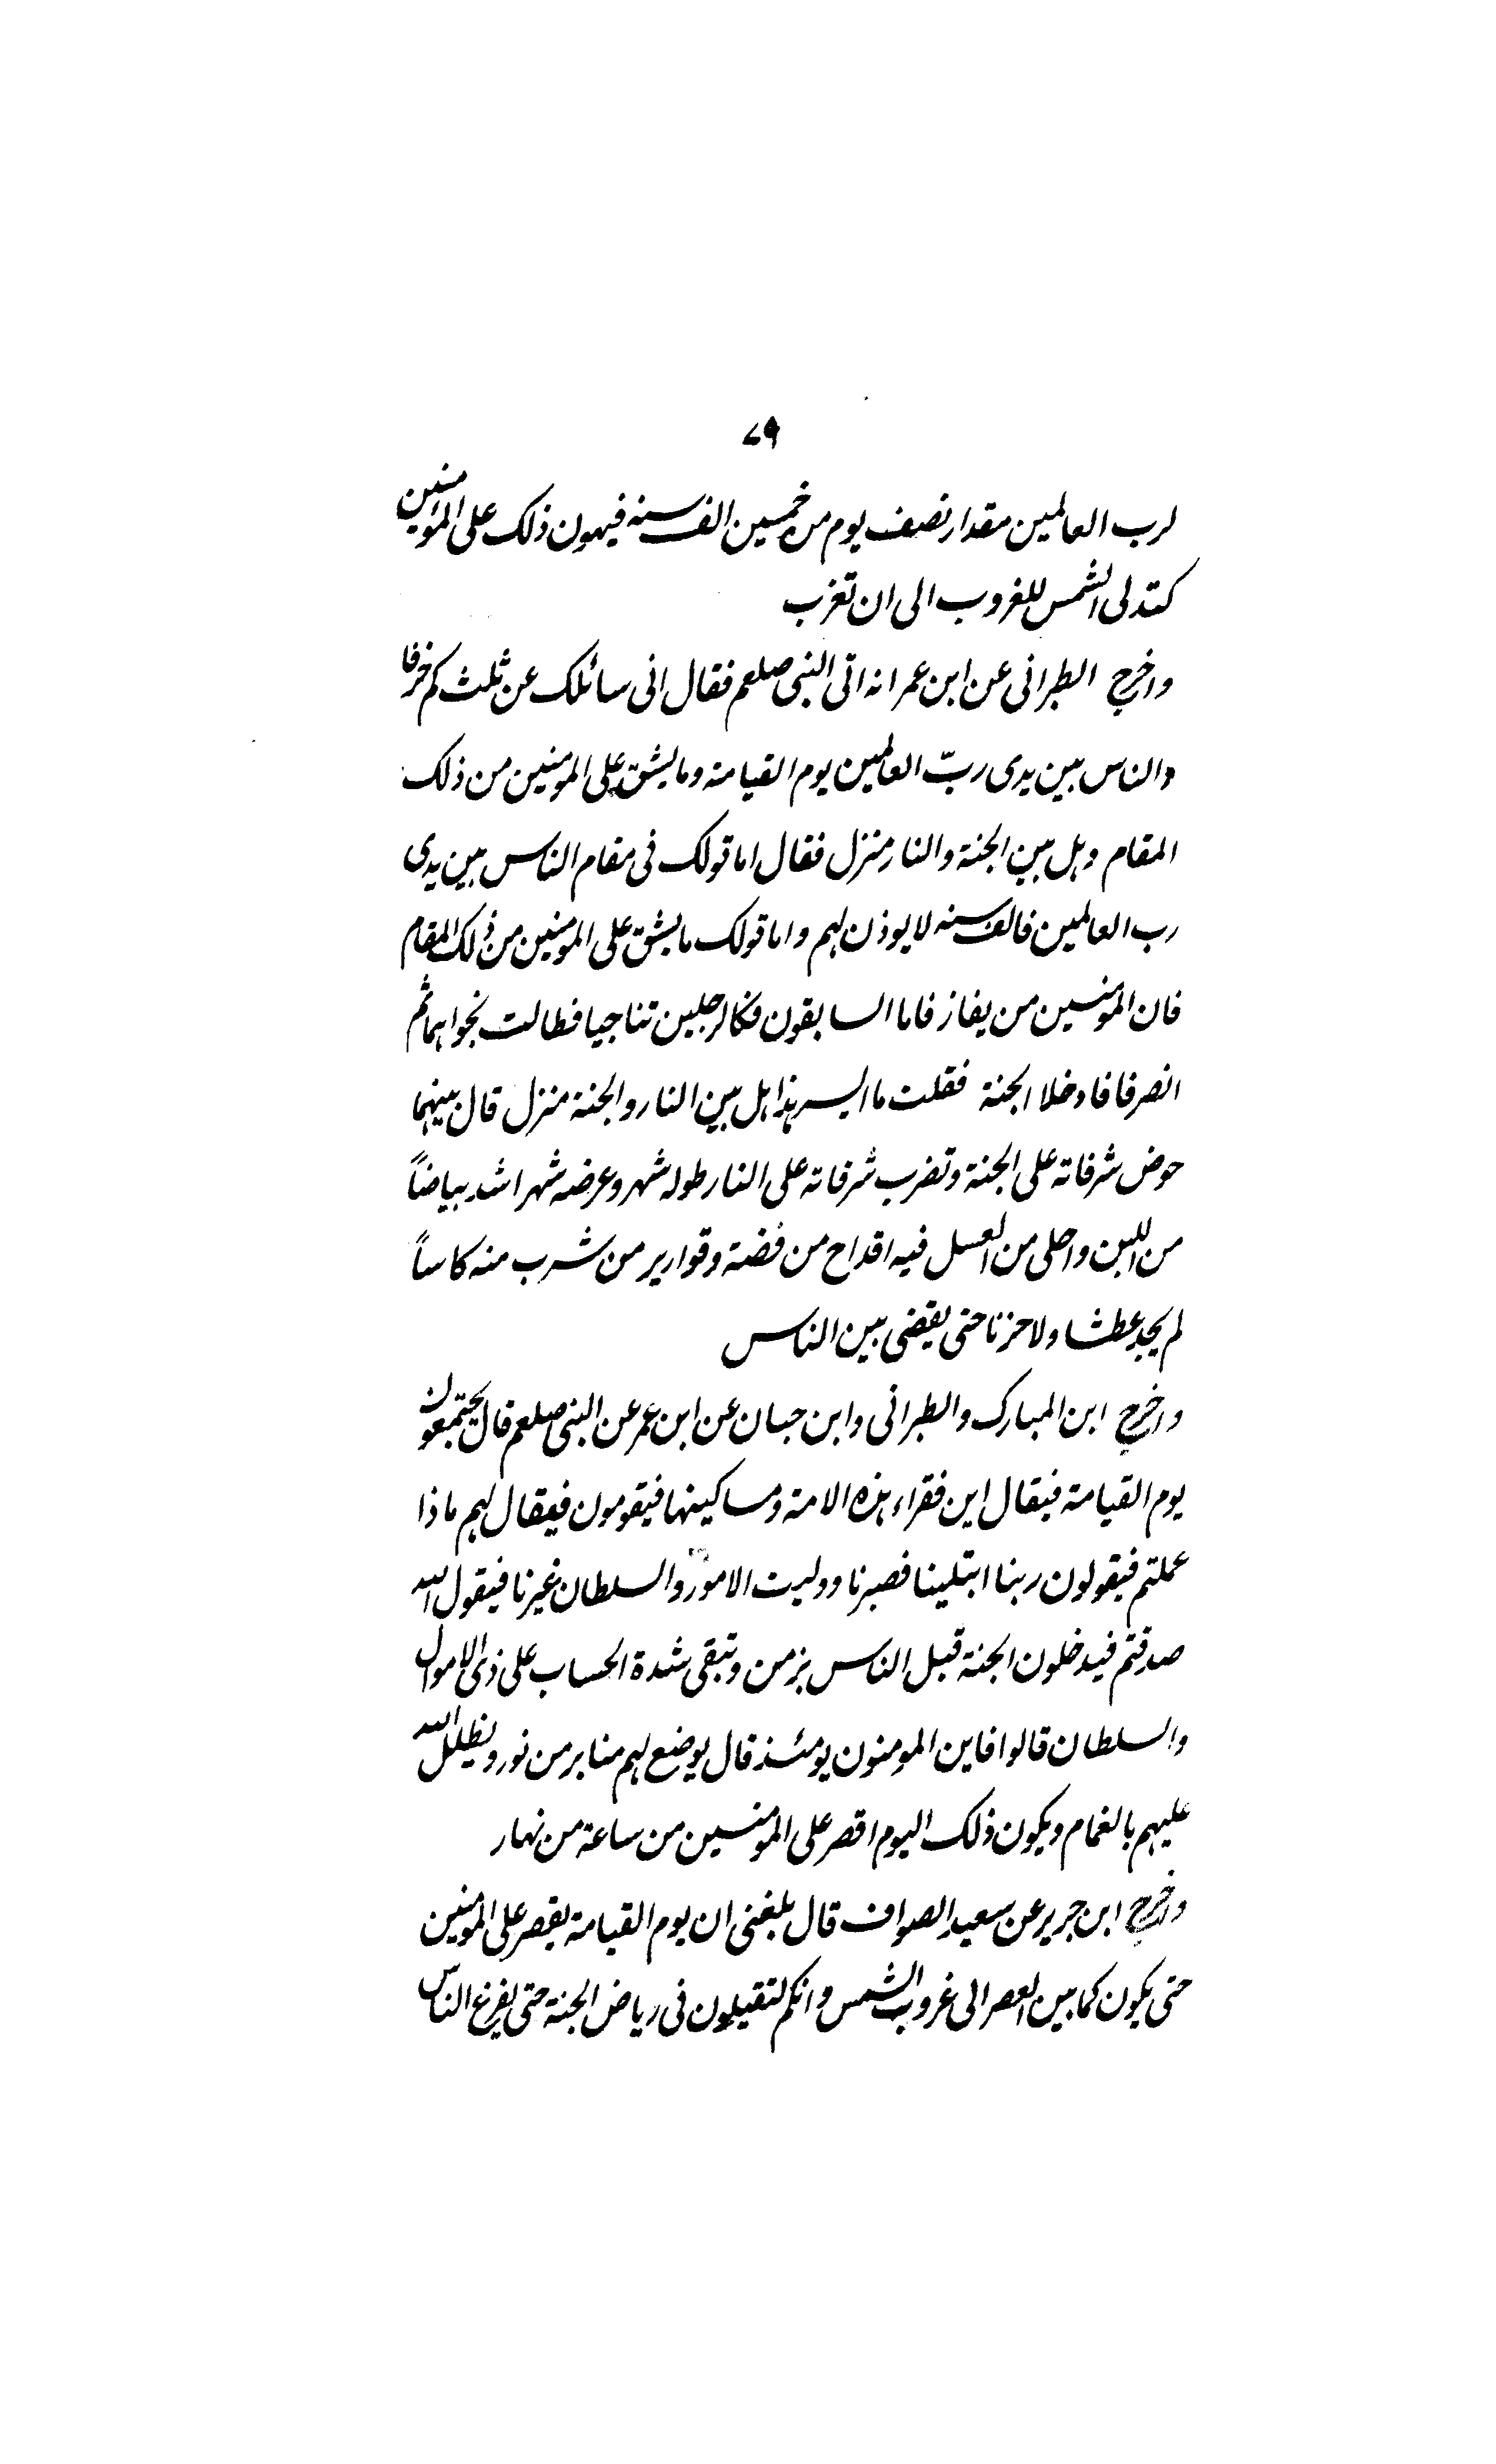 ۷۹
لرب العالمین مقدار نصف یوم من خمسین الف سنه فیهون ذلک علی المؤمنین
کتدلی الشمس للغروب الی ان تغرب
واخرج الطبرانی عن ابن عمر انه اتی النبی صلعم فقال انی سائلک عن ثلث کم خرفا
والناس بین یدی ربّ العالمین یوم القیامة وما یشق علی المومنین من ذلک
المقام وهل بین الجنة والنار منزل فقال اما قولک فی مقام الناس بین یدی
رب العالمین فالف سنه لا یوذن لهم واما قولک ما یشق علی المومنین من ذلک المقام
فان المومنین من یفاز فاما السابقون فکالرجلین تناجیا فطالت نجواهما ثم
انصرفا فادخلا الجنة فقلت ما ایسر هذا هل بین النار والجنة منزل قال بینهما
حوض شرفاته علی الجنة وتضرب شرفاته علی النار طوله شهر وعرضه شهر اشد بیاضاً
من اللبن واحلی من العسل فیه اقداح من فضة وقواریر من شرب منه کاساً
لم یجد عطشا ولا حزنا حتی یقضی بین الناس
واخرج ابن المبارک والطبرانی وابن حبان عن ابن عمر عن النبی صلعم قال یجتمعون
یوم القیامة فیقال این فقراء هذه الامة ومساکینها فیقومون فیقال لهم ماذا
عملتم فیقولون ربنا ابتلینا فصبرنا وولیت الامور والسلطان غیرنا فیقول الله
صدقتم فیدخلون الجنة قبل الناس بزمن وتبقی شدة الحساب علی ذی الاموال
والسلطان قالوا فاین المومنون یومئذ قال یوضع لهم منابر من نور ویظلل الله
علیهم بالغمام ویکون ذلک الیوم اقصر علی المومنین من ساعة من نهار
واخرج ابن جریر عن سعید الصواف قال بلغنی ان یوم القیامة یقصر علی المومنین
حتی یکون کما بین العصر الی غروب الشمس وانکم لتقیلون فی ریاض الجنة حتی یفرغ الناس